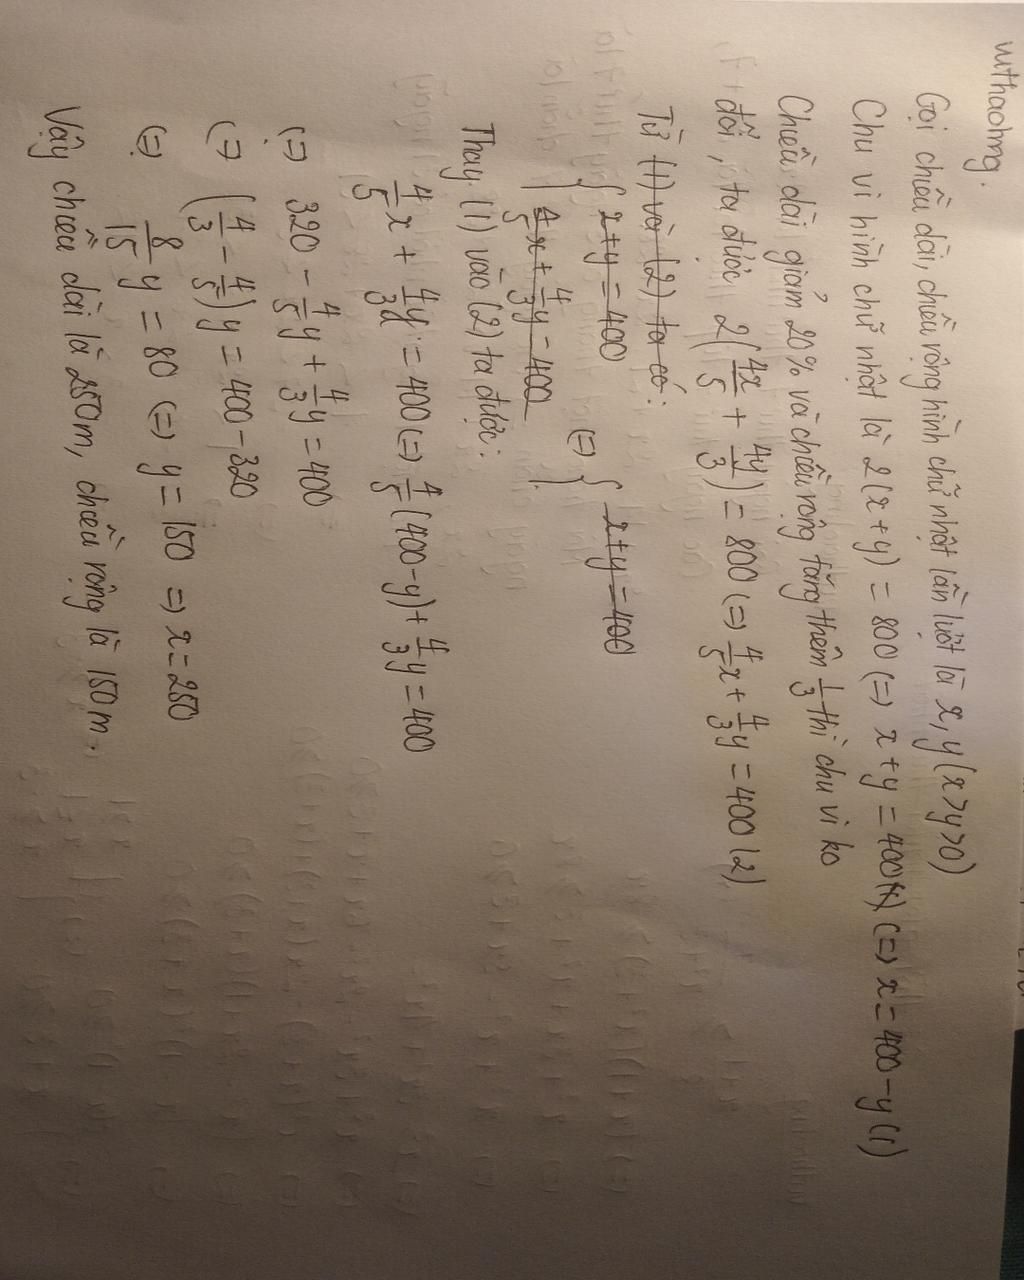 vuthaolmg.
Gọi chiều dài, chiều rộng hình chữ nhật lần lượt là x, y (x>y>0)
Chu vi hình chữ nhật là 2(x+y) = 800 (=) x+y = 400 (*) (=) x = 400-y (1)
Chiều dài giảm 20% và chiều rộng tăng thêm 1/3 thì chu vi ko
đổi, ta được 2(4x/5 + 4y/3) = 800 (=) 4/5x + 4/3y = 400 (2)
Từ (1) và (2) ta có:
{ x+y = 400
4/5x + 4/3y = 400 (=) { x+y = 400
Thay (1) vào (2) ta được:
4/5x + 4/3y = 400 (=) 4/5(400-y) + 4/3y = 400
(=) 320 - 4/5y + 4/3y = 400
(=) (4/3 - 4/5)y = 400 - 320
(=) 8/15y = 80 (=) y = 150 => x = 250
Vậy chiều dài là 250m, chiều rộng là 150m.